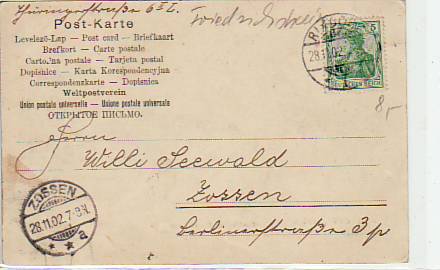 Thüringerstraße 6 II.
Post-Karte
Levelező-Lap — Post card — Briefkaart
Brefkort — Carte postale
Carto.'na postale — Tarjeta postal
Dopisnice - Karta Korespondencyjna
Correspondenzkarte — Dopisnica
Weltpostverein
Union postale universelle — Unione postale universale
ОТКРЫТОЕ ПИСЬМО.
28.11.02
5
8,-
Herrn
Willi Seewald
Zossen
Berlinerstraße 3 p
ZOSSEN
28.11.02. 7-8N.
* * a